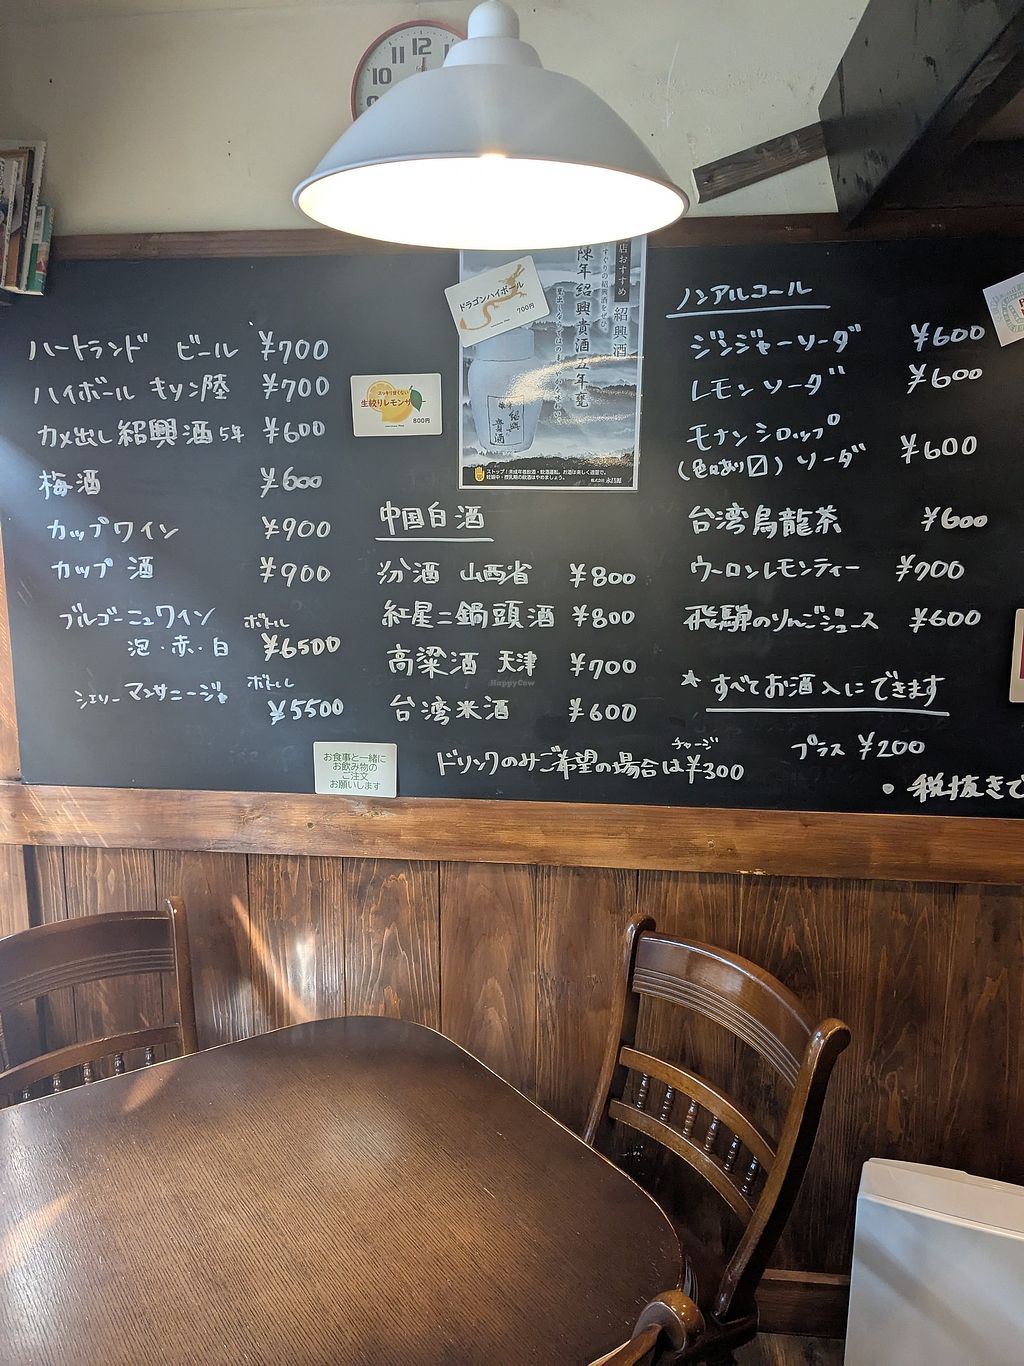 10
11
12
ハートランド ビール ¥700
ハイボール キリン陸 ¥700
カメ出し紹興酒5年 ¥600
梅酒 ¥600
カップワイン ¥900
カップ酒 ¥900
ブルゴーニュワイン ボトル
泡・赤・白 ¥6500
シェリー マンサニージャ ボトル
¥5500
ドラゴンハイボール
700円
生絞りレモンサワー
800円
店おすすめ 紹興酒
陳年紹興貴酒五年甕
紹興貴酒
ストップ!未成年者飲酒・飲酒運転。お酒は楽しく適量で。
妊娠中・授乳期の飲酒はやめましょう。
株式会社 永昌源
中国白酒
汾酒 山西省 ¥800
紅星二鍋頭酒 ¥800
高粱酒 天津 ¥700
台湾米酒 ¥600
HappyCow
お食事と一緒に
お飲み物の
ご注文
お願いします
チャージ
ドリンクのみご希望の場合は¥300
ノンアルコール
ジンジャーソーダ ¥600
レモンソーダ ¥600
モナンシロップ
(色々あり〼) ソーダ ¥600
台湾烏龍茶 ¥600
ウーロンレモンティー ¥700
飛騨のりんごジュース ¥600
★ すべてお酒入にできます
プラス ¥200
• 税抜きで